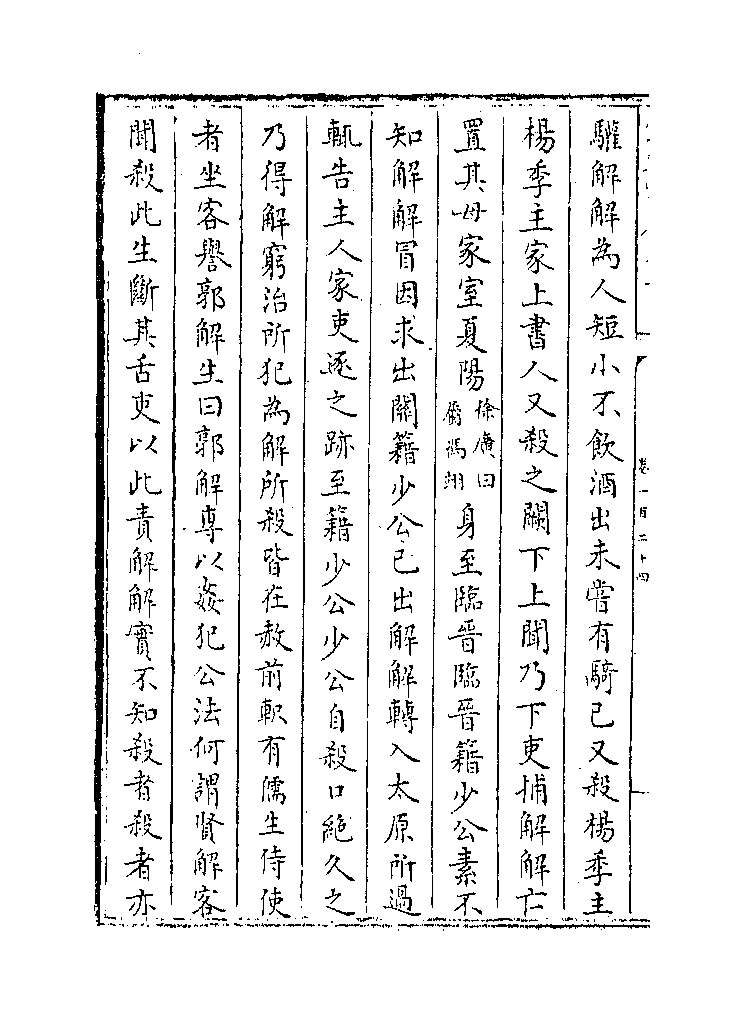 驩解解為人短小不飲酒出未嘗有騎已又殺楊季主
楊季主家上書人又殺之闕下上聞乃下吏捕解解亡
置其母家室夏陽徐廣曰屬馮翊身至臨晉臨晉籍少公素不
知解解冒因求出關籍少公已出解解轉入太原所過
輒告主人家吏逐之跡至籍少公少公自殺口絶久之
乃得解窮治所犯為解所殺皆在赦前軹有儒生侍使
者坐客譽郭解生曰郭解專以姦犯公法何謂賢解客
聞殺此生斷其舌吏以此責解解實不知殺者殺者亦
卷一百二十四